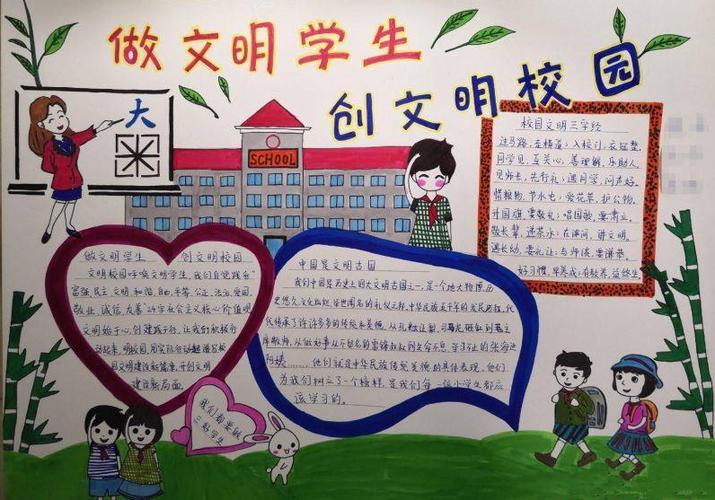 做文明学生
创文明校园
大
SCHOOL
校园文明三字经
过马路，左右看；入校门，衣冠整，
同学见，互关心，善理解，乐助人，
见师长，先行礼；遇同学，问声好，
惜粮物，节水电；爱花草，护公物，
升国旗，要敬礼；唱国歌，要肃立，
敬长辈，进茶水；在课间，讲文明，
遇长幼，要礼让；与师侯，要谦恭，
好习惯，早养成；有教养，益终生
做文明学生 创文明校园
文明校园呼唤文明学生，我们自觉践行
富强、民主、文明、和谐、自由、平等、公正、法治、爱国、
敬业、诚信、友善"24字社会主义核心价值观
文明始于心，创建践于行，让我们积极行
动起来，明校园，用实际行动
文明建设新篇章，开创文明
建设新局面。
中国是文明古国
我们中国是历史上四大文明古国之一，是个地大物博，历
史悠久，文化灿烂，举世闻名的礼仪之邦，中华民族五千年的发展历程，代
代传承了许许多多的传统和美德，从孔融让梨
从做好事从不留名的雷锋叔叔到
他们就是中华民族传统美德的具体表现，他们
为我们树立了一个榜样，是我们每一位小学生都应
该学习的。
我们都要做
三好学生